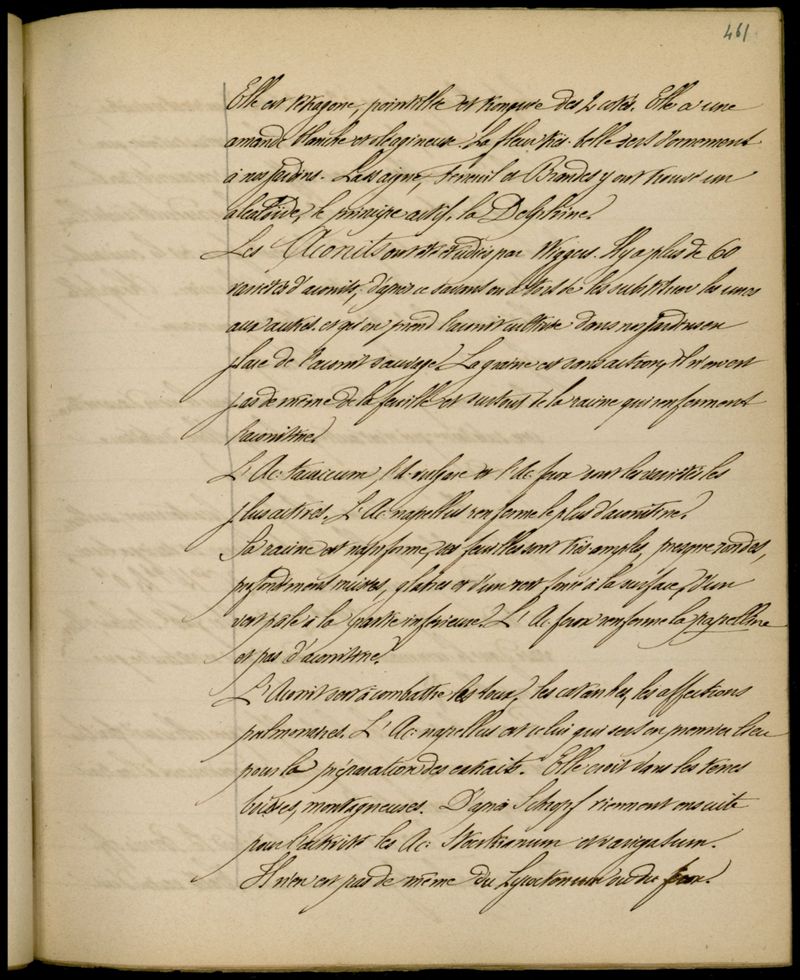 461
Elle est tétragone, pointillée et tronquée des 2 côtés. Elle a une
amande blanche et oléagineuse. La fleur très belle sert d'ornement
à nos jardins. Lassaigne, Feneuil et Brandes y ont trouvé un
alcaloïde, le principe actif, la Delphine.
Les Aconits ont été étudiés par Wiggers. Il y a plus de 60
variétés d'aconits; d'après ce savant on a tort de les substituer les unes
aux autres et qu'on prend l'aconit cultivée dans nos jardins en
place de l'aconit sauvage. La graine est sans action, il n'en est
pas de même de la feuille et surtout de la racine qui renferment
l'aconitine.
L'Ac: tauricum, l'A. vulgare et l'Ac ferox sont les variétés les
plus actives. L'Ac: napellus renferme le plus d'aconitine.
Sa racine est napiforme, ses feuilles sont très amples, presque rondes,
profondément incisées, glabres et d'un vert foncé à la surface, d'un
vert pâle à la partie inférieure. L'Ac. ferox renferme la napelline
et pas d'aconitine.
L'Aconit sert à combattre les toux, les catarrhes, les affections
pulmonaires. L'Ac: napellus est celui qui sert en premier lieu
pour la préparation des extraits. Elle croit dans les terres
boisées, montagneuses. D'après Schroff viennent ensuite
pour l'activité les Ac: Stoerkianum et variegatum.
Il n'en est pas de même du Lycoctonum ou du ferox.